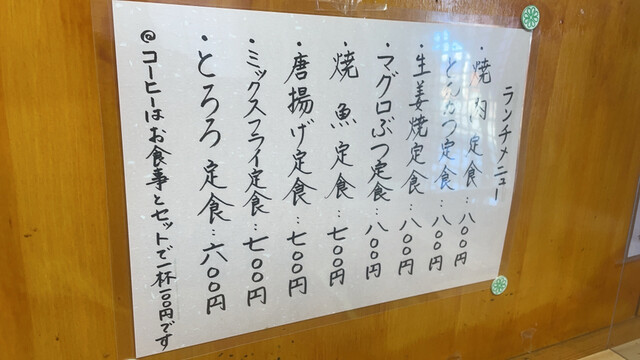 ランチメニュー
・焼肉定食…八〇〇円
・とんかつ定食…八〇〇円
・生姜焼定食…八〇〇円
・マグロぶつ定食…八〇〇円
・焼魚定食…七〇〇円
・唐揚げ定食…七〇〇円
・ミックスフライ定食…七〇〇円
・とろろ定食…六〇〇円
@コーヒーはお食事とセットで一杯一〇〇円です